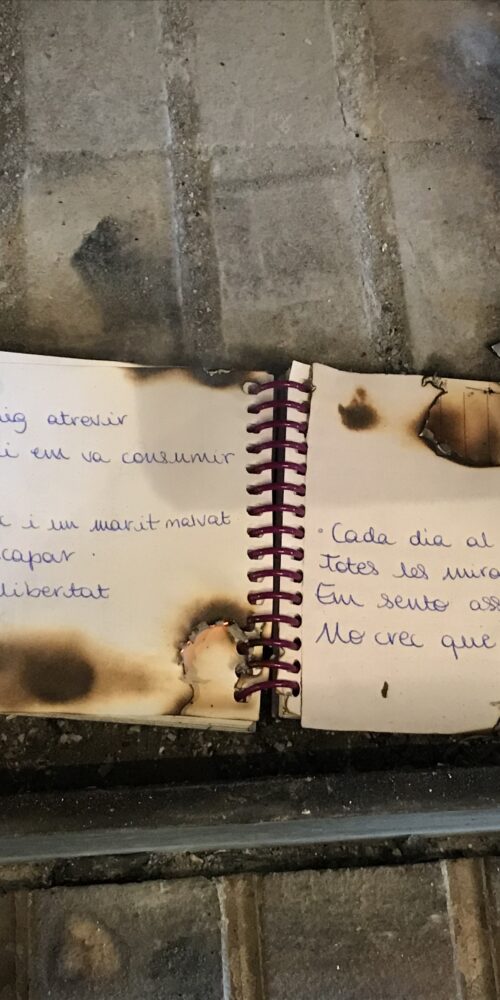 atrevir
i em va consumir
i un marit malvat
libertat
Cada dia al
Totes les
Em sento
No crec que